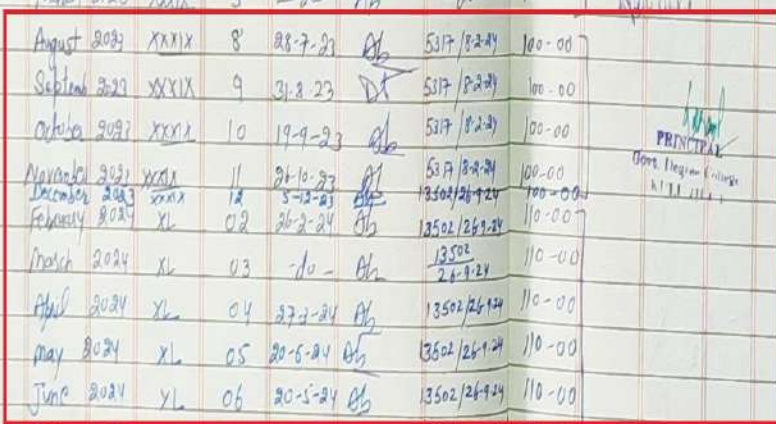 August 2023 XXXIX 8 28-7-23 Ab 5317/8-2-24 100-00
Septemb 2023 XXXIX 9 31-8-23 5317/8-2-24 100-00
October 2023 XXXIX 10 19-9-23 Ab 5317/8-2-24 100-00
PRINCIPAL
November 2023 XXXIX 11 26-10-23 Ab 5317/8-2-24 100-00
Govt.
December 2023 XXXIX 12 5-12-23 Ab 13502/26-9-24 100-00
February 2024 XL 02 26-2-24 Ab 13502/26-9-24 110-00
March 2024 XL 03 -do- Ab 13502/26-9-24 110-00
April 2024 XL 04 27-3-24 Ab 13502/26-9-24 110-00
May 2024 XL 05 20-6-24 Ab 13502/26-9-24 110-00
June 2024 XL 06 20-5-24 Ab 13502/26-9-24 110-00